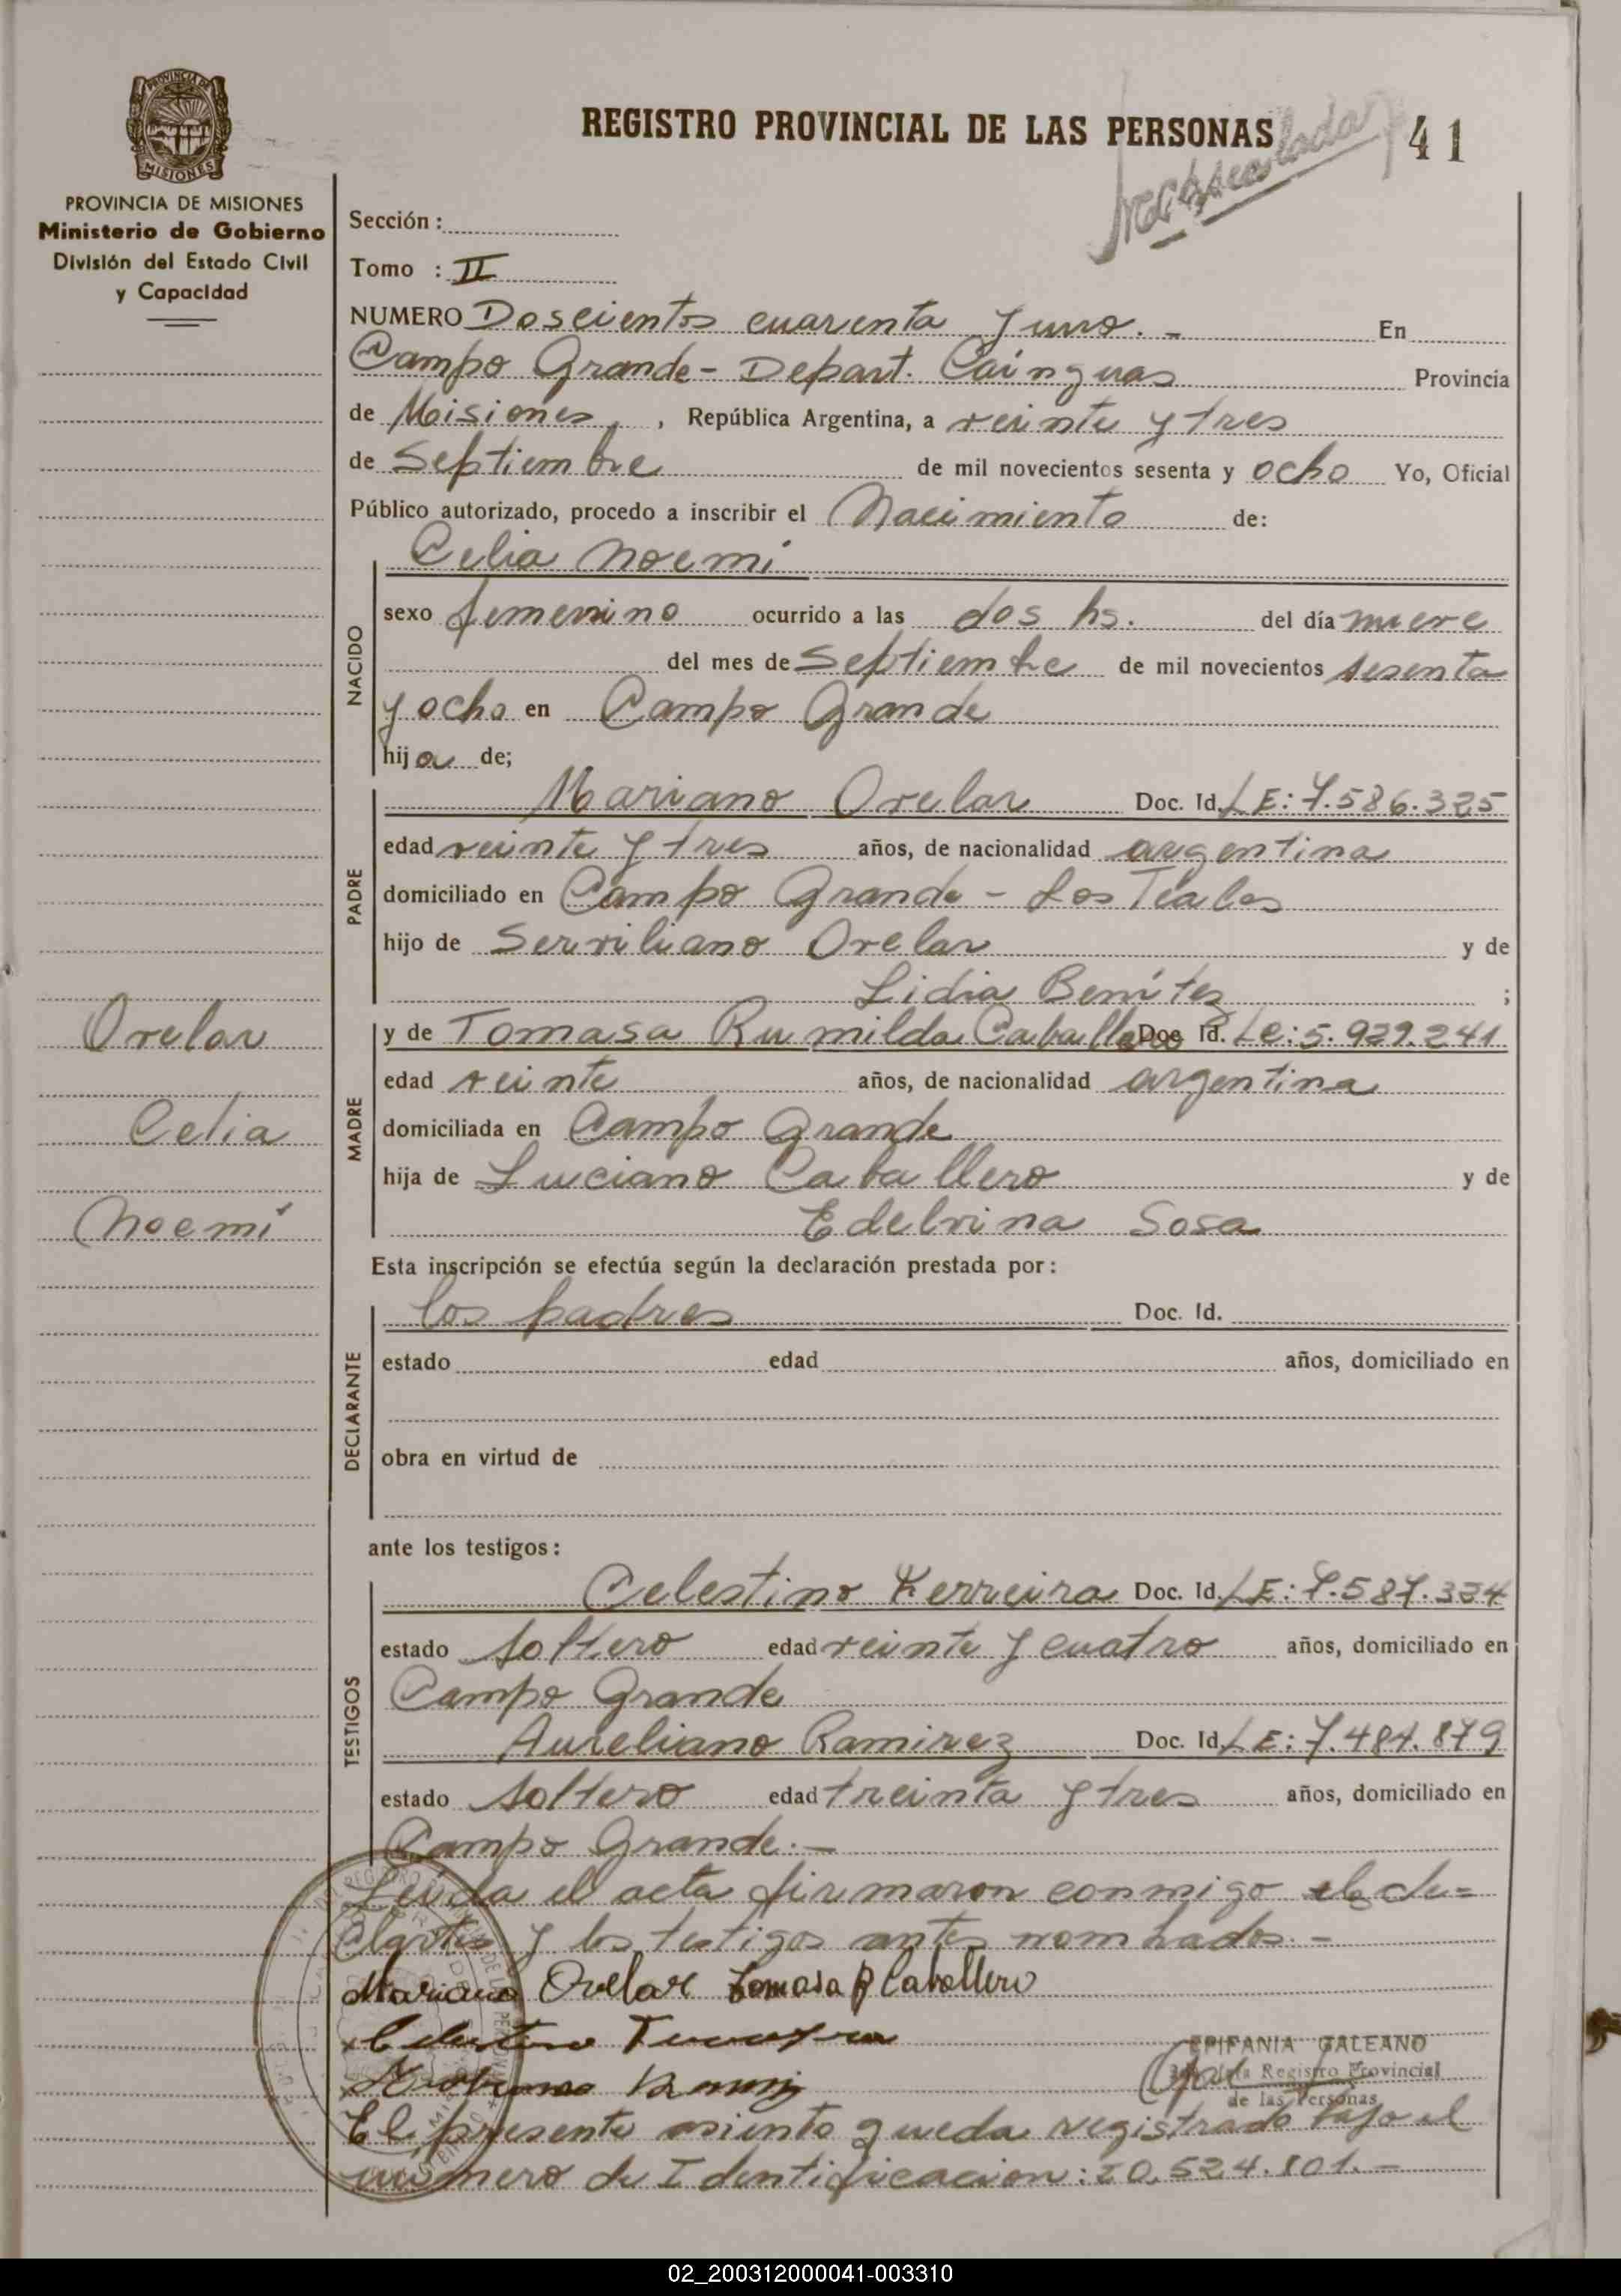 REGISTRO PROVINCIAL DE LAS PERSONAS
41
MISIONES
PROVINCIA DE MISIONES
Ministerio de Gobierno
División del Estado Civil
y Capacidad
Sección:
Tomo : II
NUMERO Doscientos cuarenta y uno. - En
Campo Grande - Depart. Cainguas Provincia
de Misiones, República Argentina, a veinte y tres
de Septiembre de mil novecientos sesenta y ocho Yo, Oficial
Público autorizado, procedo a inscribir el Nacimiento de:
NACIDO
Celia Noemi
sexo femenino ocurrido a las dos hs. del día nueve
del mes de Septiembre de mil novecientos sesenta
y ocho en Campo Grande
hija de;
PADRE
Mariano Ovelar Doc. Id. LE: 7.586.325
edad veinte y tres años, de nacionalidad argentina
domiciliado en Campo Grande - Los Teales
hijo de Serviliano Ovelar y de
Lidia Benítez ;
MADRE
y de Tomasa Rumilda Caballero Doc. Id. Le: 5.929.241
edad veinte años, de nacionalidad argentina
domiciliada en Campo Grande
hija de Luciano Caballero y de
Edelvina Sosa
Ovelar
Celia
Noemí
Esta inscripción se efectúa según la declaración prestada por:
DECLARANTE
los padres Doc. Id.
estado edad años, domiciliado en
obra en virtud de
ante los testigos:
TESTIGOS
Celestino Ferreira Doc. Id. LE: 7.587.334
estado soltero edad veinte y cuatro años, domiciliado en
Campo Grande
Aureliano Ramirez Doc. Id. LE: 7.484.879
estado soltero edad treinta y tres años, domiciliado en
Campo Grande.-
Leida el acta firmaron conmigo los de=
y los testigos antes nombrados.-
Mariano Ovelar Tomasa R Caballero
EPIFANIA GALEANO
Registro Provincial
de las Personas
El presente asiento queda registrado bajo el
número de Identificacion: 20.524.801.-
02_200312000041-003310